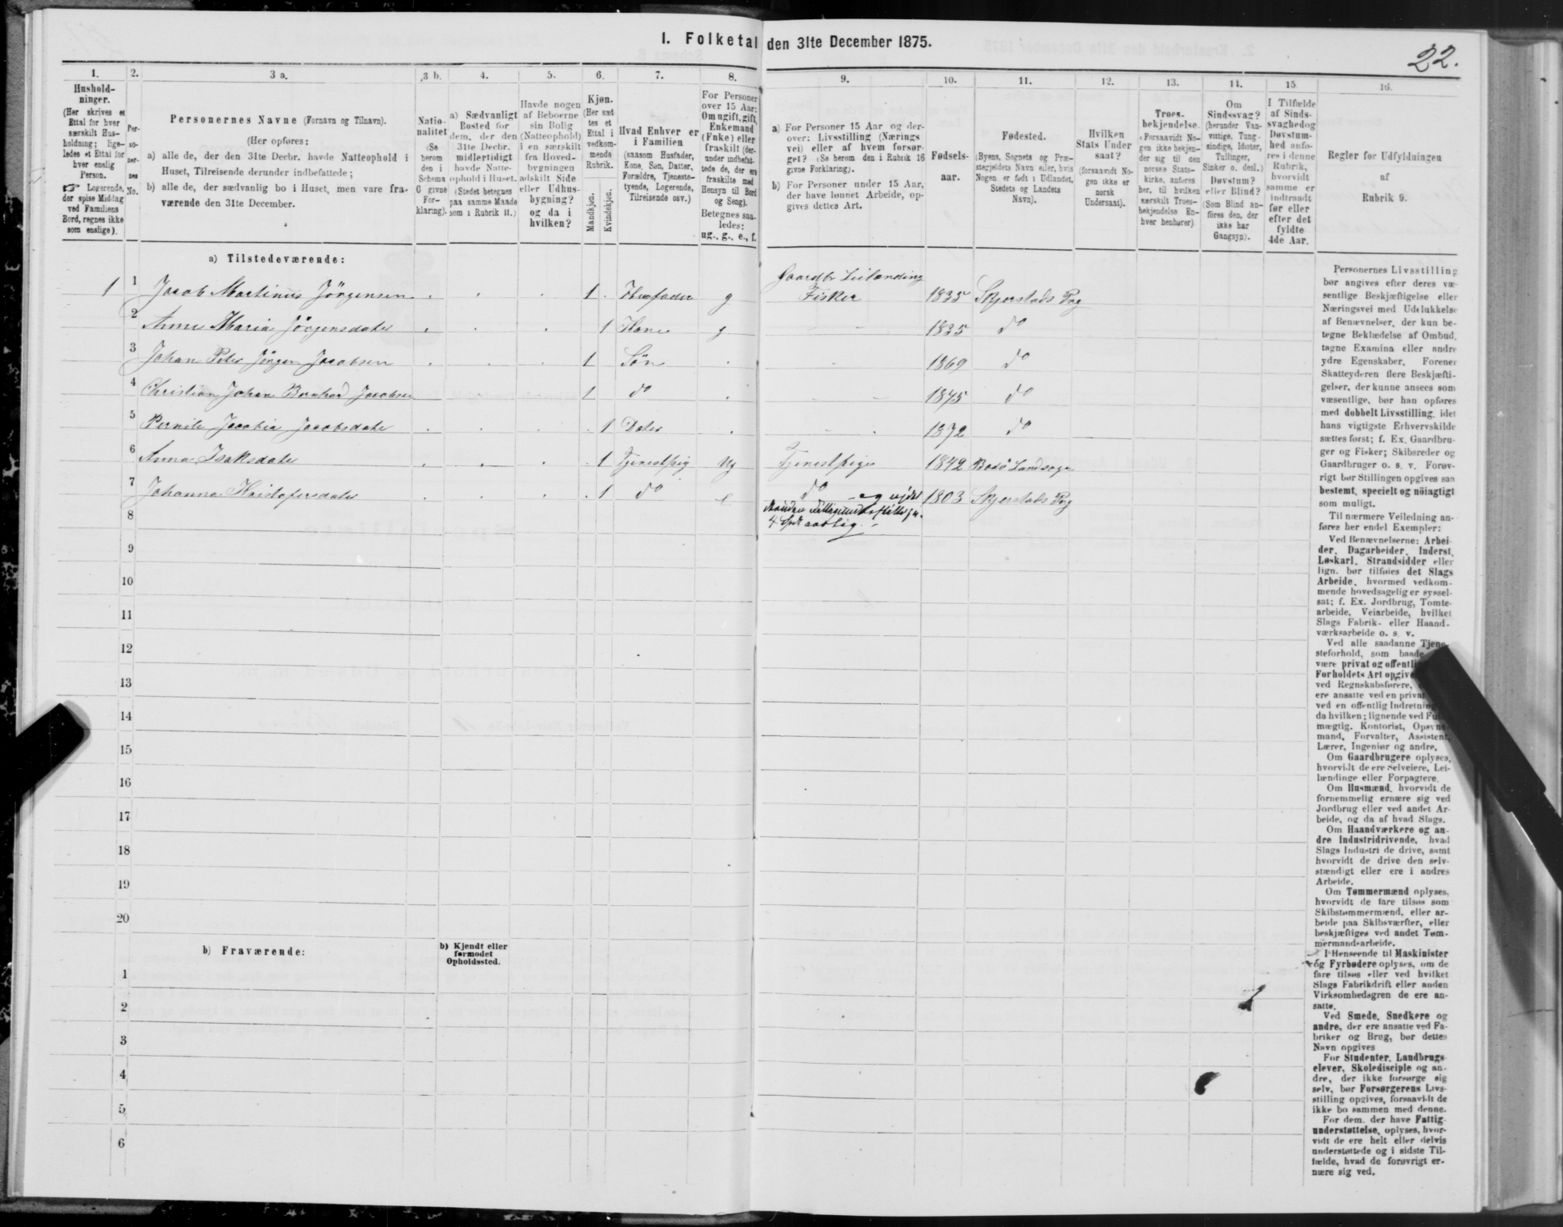 1. Folketal den 31te December 1875.
22.
1.
2.
3 a.
3 b.
4.
5.
6.
7.
8.
9.
10.
11.
12.
13.
14.
15.
16.
Hushold-
ninger.
(Her skrives et
Ettal for hver
særskilt Hus-
holdning; lige-
ledes et Ettal for
hver enslig
Person.
☞ Logerende,
der spise Middag
ved Familiens
Bord, regnes ikke
som enslige).
Per-
so-
ner-
nes
No.
Personernes Navne (Fornavn og Tilnavn).
(Her opføres:
a) alle de, der den 31te Decbr. havde Natteophold i
Huset, Tilreisende derunder indbefattede;
b) alle de, der sædvanlig bo i Huset, men vare fra-
værende den 31te December.
Natio-
nalitet
(Se
herom
den i
Schema
6 givne
For-
klaring).
a) Sædvanligt
Bosted for
dem, der den
31te Decbr.
midlertidigt
havde Natte-
ophold i Huset.
(Stedet betegnes
paa samme Maade
som i Rubrik 11.)
Havde nogen
af Beboerne
sin Bolig
(Natteophold)
i en særskilt
fra Hoved-
bygningen
adskilt Side
eller Udhus-
bygning?
og da i
hvilken?
Kjøn.
(Her sæt
tes et
Ettal i
vedkom-
mende
Rubrik.
Mandkjøn.
Kvindekjøn.
Hvad Enhver er
i Familien
(saasom Husfader,
Kone, Søn, Datter,
Forældre, Tjeneste-
tyende, Logerende,
Tilreisende osv.)
For Personer
over 15 Aar:
Om ugift, gift,
Enkemand
(Enke) eller
fraskilt (der-
under indbefat-
tede de, der ere
fraskilte med
Hensyn til Bord
og Seng).
Betegnes saa-
ledes:
ug., g., e., f.
a) For Personer 15 Aar og der-
over: Livsstilling (Nærings-
vei) eller af hvem forsør-
get? (Se herom den i Rubrik 16
givne Forklaring).
b) For Personer under 15 Aar,
der have lønnet Arbeide, op-
gives dettes Art.
Fødsels-
aar.
Fødested.
(Byens, Sognets og Præ-
stegjeldets Navn eller, hvis
Nogen er født i Udlandet,
Stedets og Landets
Navn).
Hvilken
Stats Under
saat?
(forsaavidt No-
gen ikke er
norsk
Undersaat).
Troes-
bekjendelse.
(Forsaavidt No-
gen ikke bekjen-
der sig til den
norske Stats-
kirke, anføres
her, til hvilken
særskilt Troes-
bekjendelse En-
hver henhører).
Om
Sindssvag?
(herunder Van-
vittige, Tung-
sindige, Idioter,
Tullinger,
Sinker o. desl.)
Døvstum?
eller Blind?
(Som Blind an-
føres den, der
ikke har
Gangsyn).
I Tilfælde
af Sinds-
svaghed og
Døvstum-
hed anfø-
res i denne
Rubrik,
hvorvidt
samme er
indtraadt
før eller
efter det
fyldte
4de Aar.
Regler for Udfyldningen
af
Rubrik 9.
a) Tilstedeværende:
1 1 Jacob Martinus Jörgensen 1 Husfader g Gaardbr Leilænding Fisker 1835 Skjerstads Pg
2 Anne Maria Jörgensdater 1 Kone g 1835 do
3 Johan Peter Jörgen Jacobsen 1 Sön 1869 do
4 Christian Johan Bernhard Jacobsen 1 do 1875 do
5 Pernile Jacobia Jacobsdater 1 Dater 1872 do
6 Anna Isaksdater 1 Tjenestpig ug Tjenestpige 1842 Bodö Landsogn
7 Johanna Kristofersdater 1 do e do 1803 Skjerstads Pg
8
9
10
11
12
13
14
15
16
17
18
19
20
b) Fraværende:
b) Kjendt eller
formodet
Opholdssted.
1
2
3
4
5
6
Personernes Livsstilling
bør angives efter deres væ-
sentlige Beskjæftigelse eller
Næringsvei med Udelukkelse
af Benævnelser, der kun be-
tegne Beklædelse af Ombud,
tagne Examina eller andre
ydre Egenskaber. Forener
Skatteyderen flere Beskjæfti-
gelser, der kunne ansees som
væsentlige, bør han opføres
med dobbelt Livsstilling, idet
hans vigtigste Erhvervskilde
sættes først; f. Ex. Gaardbru-
ger og Fisker; Skibsreder og
Gaardbruger o. s. v. Forøv-
rigt bør Stillingen opgives saa
bestemt, specielt og nøiagtigt
som muligt.
Til nærmere Veiledning an-
føres her endel Exempler:
Ved Benævnelserne: Arbei-
der, Dagarbeider, Inderst,
Løskarl, Strandsidder eller
lign. bør tilføies det Slags
Arbeide, hvormed vedkom-
mende hovedsagelig er syssel-
sat; f. Ex. Jordbrug, Tomte-
arbeide, Veiarbeide, hvilket
Slags Fabrik- eller Haand-
værksarbeide o. s. v.
Ved alle saadanne Tjene-
steforhold, som baade
være privat og offentli
Forholdets Art opgive
ved Regnskabsførere,
ere ansatte ved en privat
ved en offentlig Indretning
da hvilken; lignende ved Fuld-
mægtig, Kontorist, Opsyns-
mand, Forvalter, Assistent,
Lærer, Ingeniør og andre.
Om Gaardbrugere oplyses,
hvorvidt de ere Selveiere, Lei-
lændinge eller Forpagtere.
Om Husmænd, hvorvidt de
fornemmelig ernære sig ved
Jordbrug eller ved andet Ar-
beide, og da af hvad Slags.
Om Haandværkere og an-
dre Industridrivende, hvad
Slags Industri de drive, samt
hvorvidt de drive den selv-
stændigt eller ere i andres
Arbeide.
Om Tømmermænd oplyses,
hvorvidt de fare tilsøs som
Skibstømmermænd, eller ar-
beide paa Skibsværfter, eller
beskjæftiges ved andet Tøm-
mermandsarbeide.
I Henseende til Maskinister
og Fyrbødere oplyses, om de
fare tilsøs eller ved hvilket
Slags Fabrikdrift eller anden
Virksomhedsgren de ere an-
satte.
Ved Smede, Snedkere og
andre, der ere ansatte ved Fa-
briker og Brug, bør dettes
Navn opgives
For Studenter, Landbrugs-
elever, Skoledisciple og an-
dre, der ikke forsørge sig
selv, bør Forsørgerens Livs-
stilling opgives, forsaavidt de
ikke bo sammen med denne.
For dem, der have Fattig-
understøttelse, oplyses, hvor-
vidt de ere helt eller delvis
understøttede og i sidste Til-
fælde, hvad de forøvrigt er-
nære sig ved.